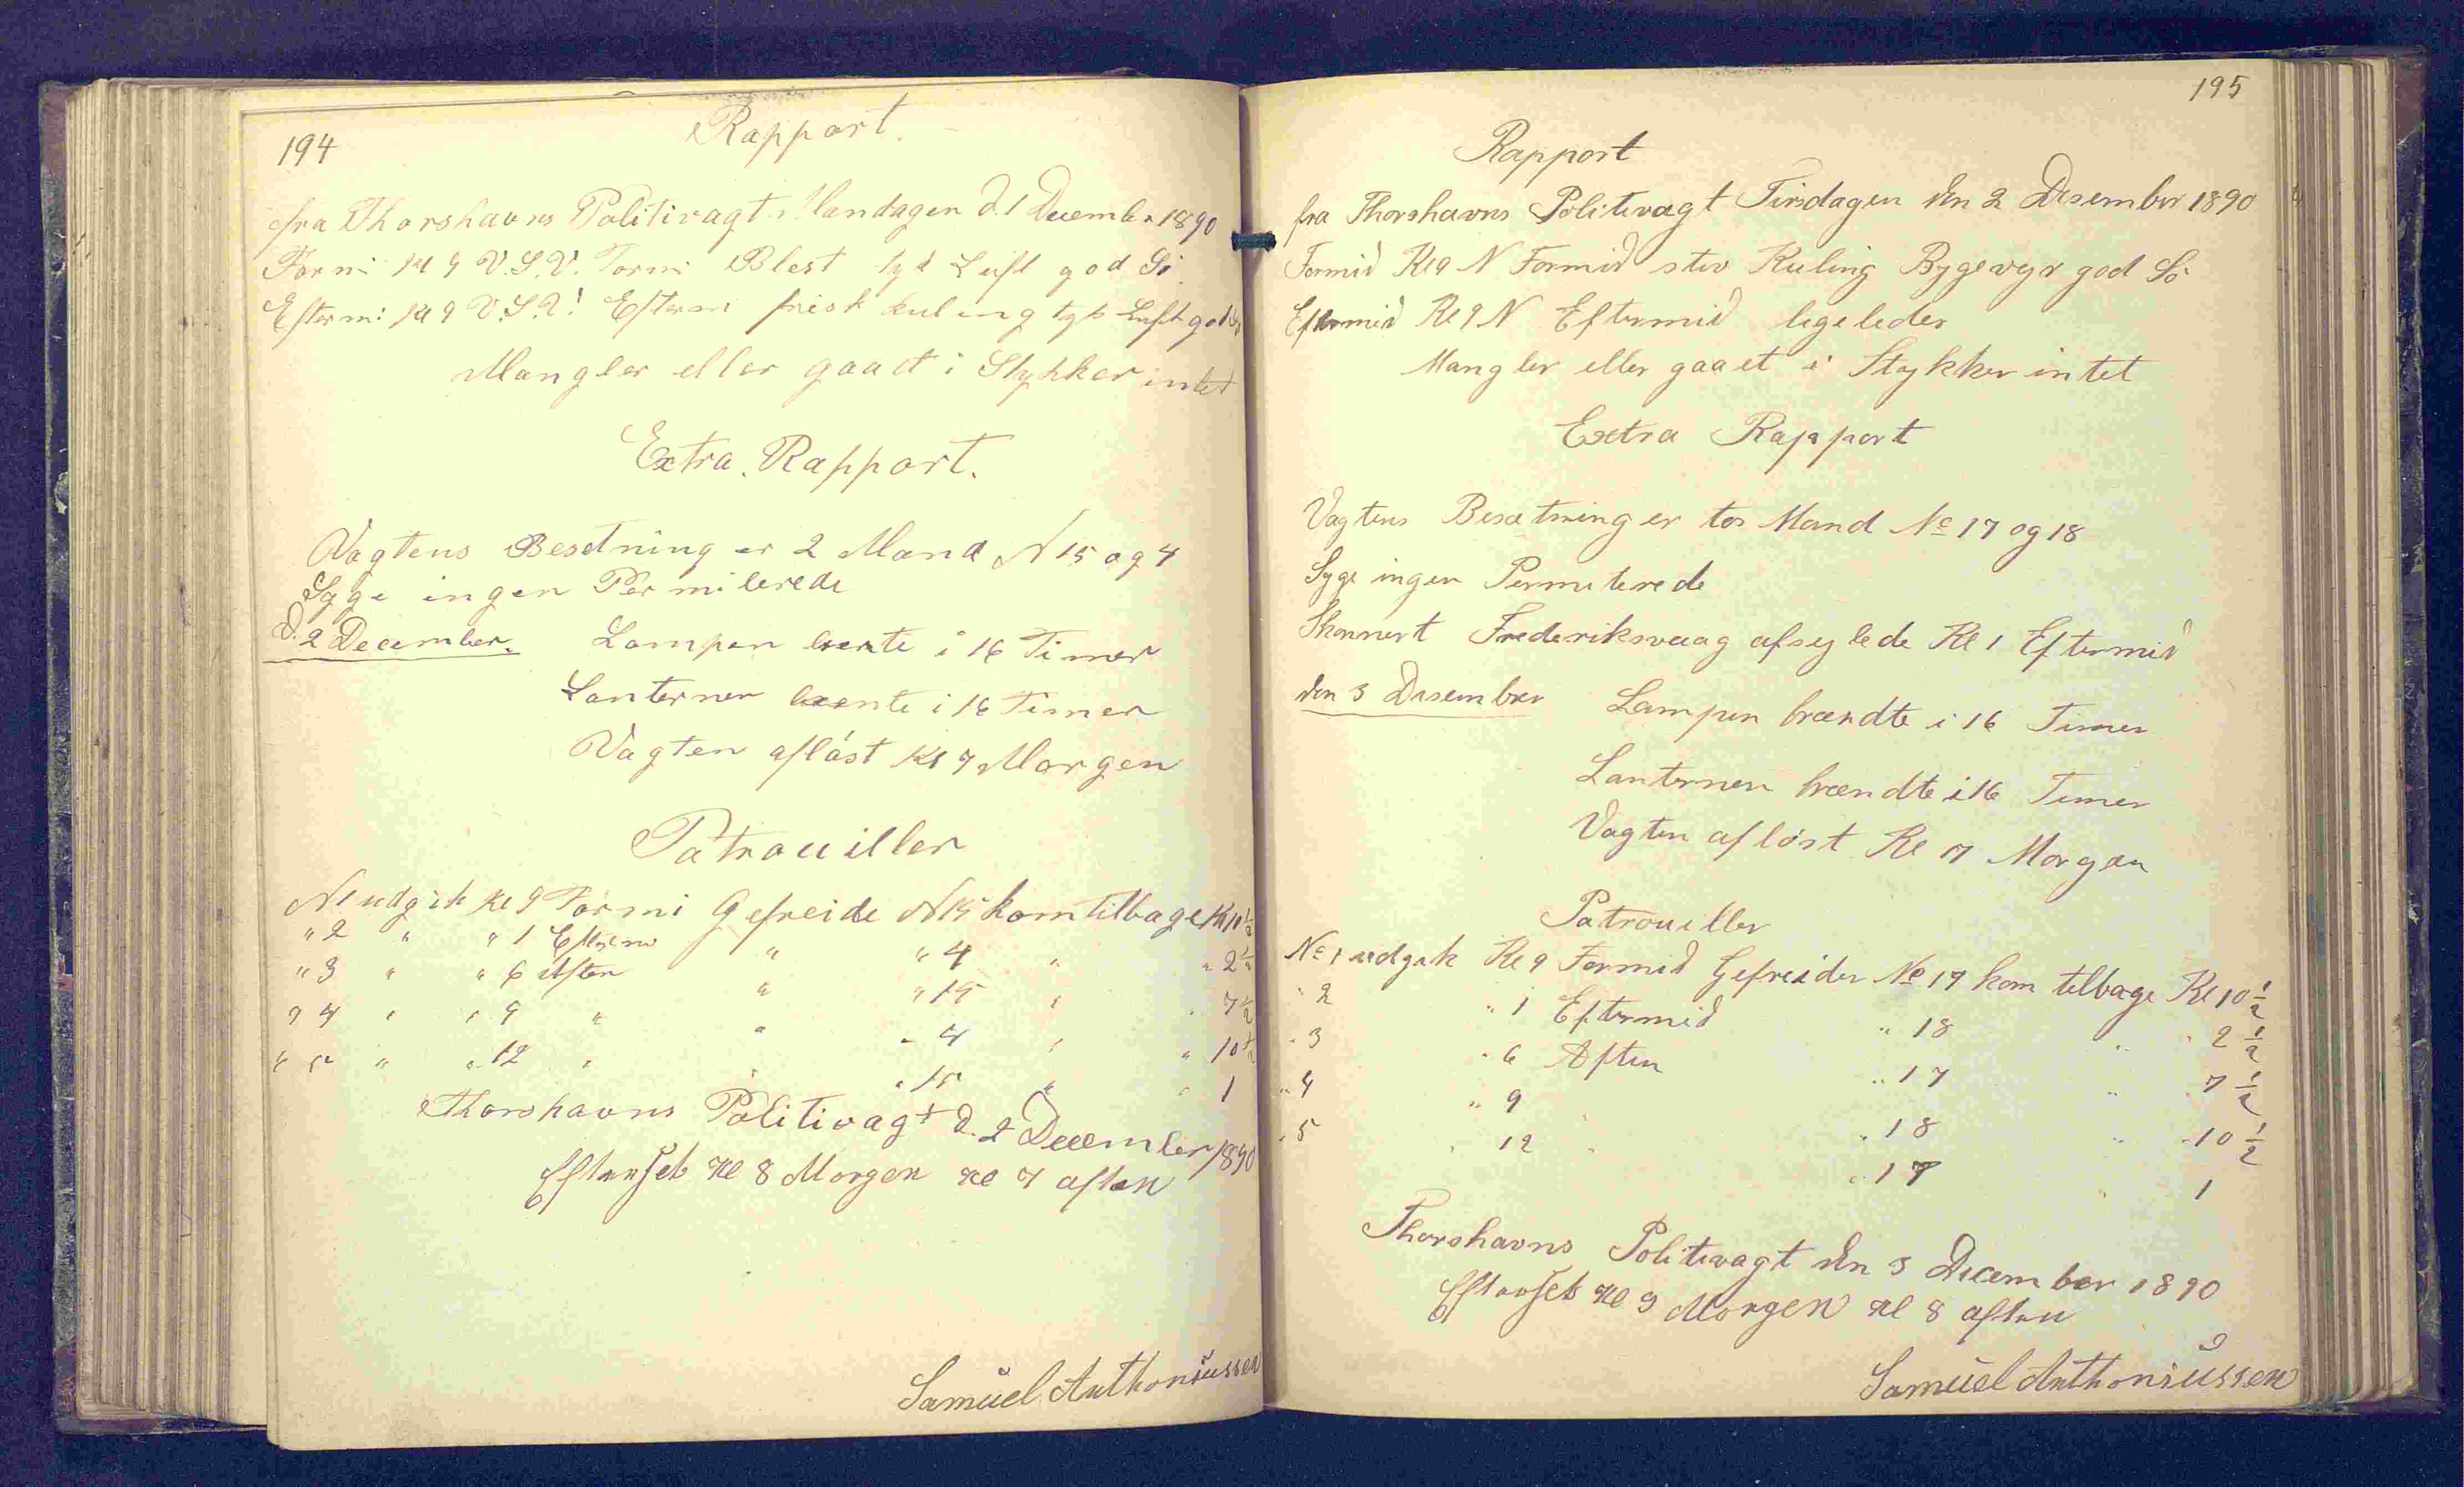 194
Rapport.
fra Thorshavns Politivagt Mandagen d. 1 December 1890
Formi Kl 9 V.S.V. Formi Blest tyk Luft god Sö
Efterm: Kl 9 V.S.V. Efterm frisk kuling tyk Luft god Sö
Mangler eller gaaet i Stykker intet
Extra. Rapport.
Vagtens Besetning er 2 Mand N 15 og 4
Syge ingen Permiterede
d. 2 December. Lampen brente i 16 Timer
Lanternen brente i 16 Timer
Vagten aflöst Kl 7 Morgen
Patrouiller
N 1 udgik Kl 9 Formi Gefreide N 15 kom tilbage Kl 10 1/2
" 2 " " 1 Efterm " " 4 " " 2 1/2
" 3 " " 6 Aften " " 15 " " 7 1/2
" 4 " " 9 " " " 4 " " 10 1/2
" 5 " " 12 " " " 15 " " 1
Thorshavns Politivagt d. 2 December 1890
Efterset Kl 8 Morgen Kl 7 aften
Samuel Anthoniussen
195
Rapport
fra Thorshavns Politivagt Tirsdagen den 2 Desember 1890
Formid Kl 9 N Formid stiv Kuling Bygevejr god Sö
Eftermid Kl 9 N Eftermid ligeledes
Mangler eller gaaet i Stykker intet
Extra Rapport
Vagtens Besætning er tor Mand No 17 og 18
Syge ingen Permiterede
Skonnert Frederiksvaag afseylede Kl 1 Eftermid
den 3 Desember Lampen brændte i 16 Timer
Lanternen brændte i 16 Timer
Vagten aflöst Kl 7 Morgen
Patrouiller
No 1 udgik Kl 9 Formid Gefreider No 17 kom tilbage Kl 10 1/2
" 2 " 1 Eftermid " 18 " " 2 1/2
" 3 " 6 Aften " 17 " 7 1/2
" 4 " 9 " " 18 " " 10 1/2
" 5 " 12 " " 17 " 1
Thorshavns Politivagt den 3 December 1890
Efterset Kl 9 Morgen Kl 8 aften
Samuel Anthoniussen